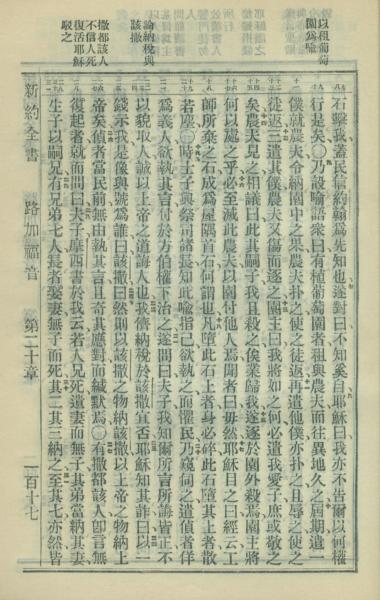 以租葡萄
園爲喻
論納稅與
該撒
撒都該人
不信人死
復活耶穌
駁之
石擊我蓋民信約翰爲先知也遂對曰不知奚自耶穌曰我亦不告爾以何權
行是矣〇乃設喻語衆曰有植葡萄園者租與農夫而往異地久之屆期遣一
僕就農夫令納園中之果農夫扑之使之徒返再遣他僕亦扑之且辱之使之
徒返三遣其僕農夫又傷而逐之園主曰我將如之何必遣我愛子庶或敬之
矣農夫見之相議曰此其嗣子我且殺之俟業歸我遂逐於園外殺焉園主將
何以處之乎必至滅此農夫以園付他人焉聞者曰毋然耶穌目之曰經云工
師所棄之石成爲屋隅首石何謂也凡墮此石上者身必碎此石墮其上者散
若塵〇時士子與祭司諸長知此喩指己欲執之而懼民乃窺伺之遣偵者佯
爲義人欲執其言付於方伯權下治之遂問曰夫子我知爾所言所誨皆正不
以貌取人誠以上帝之道誨人也我儕納稅於該撒宜否耶穌知其詐曰以一
錢示我是像與號爲誰曰該撒曰然則以該撒之物納該撒以上帝之物納上
帝矣偵者當民前無由執其言且奇其應對而緘默焉〇有撒都該人卽言無
復起者就而問曰夫子摩西書於我云若人兄死遺妻而無子其弟當納其妻
生子以嗣兄有兄弟七人長者娶妻無子而死其二其三納之至其七亦然皆
新約全書
路加福音
第二十章
一百十七